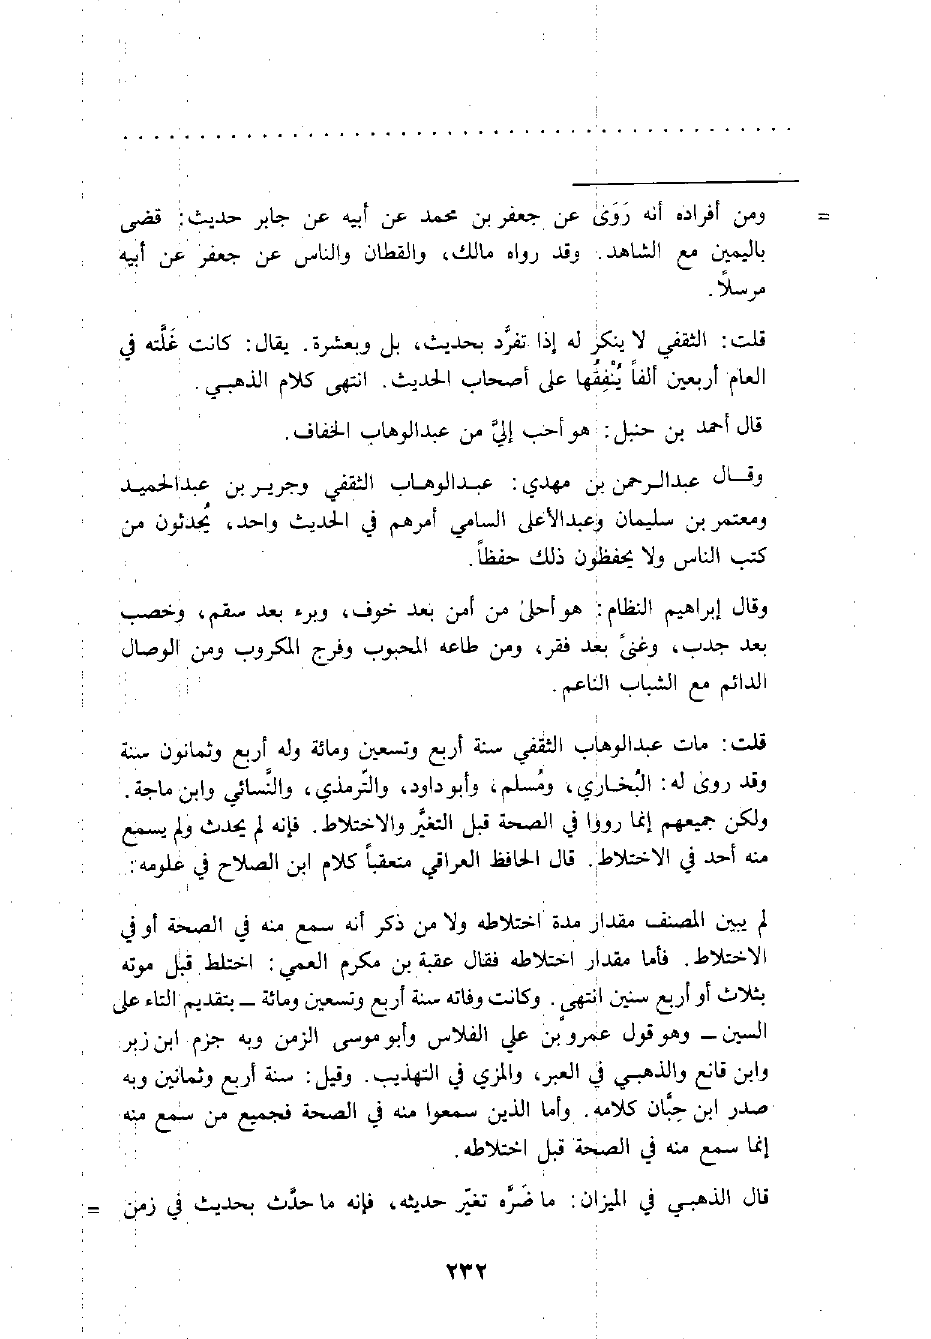 = ومن أفراده أنه رَوَىٰ عن جعفر بن محمد عن أبيه عن جابر حديث: قضى
باليمين مع الشاهد. وقد رواه مالك، والقطان والناس عن جعفر عن أبيه
مرسلاً.
قلت: الثقفي لا ينكر له إذا تفرَّد بحديث، بل وبعشرة. يقال: كانت غَلَّته في
العام أربعين ألفاً يُنْفِقُها على أصحاب الحديث. انتهى كلام الذهبي.
قال أحمد بن حنبل: هو أحب إليَّ من عبدالوهاب الخفاف.
وقال عبدالرحمن بن مهدي: عبدالوهاب الثقفي وجرير بن عبدالحميد
ومعتمر بن سليمان وعبدالأعلى السامي أمرهم في الحديث واحد، يُحدثون من
كتب الناس ولا يحفظون ذلك حفظاً.
وقال إبراهيم النظام: هو أحلىٰ من أمن بعد خوف، وبرء بعد سقم، وخصب
بعد جدب، وغنىً بعد فقر، ومن طاعه المحبوب وفرج المكروب ومن الوصال
الدائم مع الشباب الناعم.
قلت: مات عبدالوهاب الثقفي سنة أربع وتسعين ومائة وله أربع وثمانون سنة
وقد روى له: البُخاري، ومُسلم، وأبو داود، والتّرمذي، والنَّسائي وابن ماجة.
ولكن جميعهم إنما رووا في الصحة قبل التغيَّر والاختلاط. فإنه لم يحدث ولم يسمع
منه أحد في الاختلاط. قال الحافظ العراقي متعقباً كلام ابن الصلاح في علومه:
لم يبين المصنف مقدار مدة اختلاطه ولا من ذكر أنه سمع منه في الصحة أو في
الاختلاط. فأما مقدار اختلاطه فقال عقبة بن مكرم العمي: اختلط قبل موته
بثلاث أو أربع سنين انتهى. وكانت وفاته سنة أربع وتسعين ومائة ــ بتقديم التاء على
السين ــ وهو قول عمرو بن علي الفلاس وأبو موسى الزمن وبه جزم ابن زبر
وابن قانع والذهبي في العبر، والمزي في التهذيب. وقيل: سنة أربع وثمانين وبه
صدر ابن حِبَّان كلامه. وأما الذين سمعوا منه في الصحة فجميع من سمع منه
إنما سمع منه في الصحة قبل اختلاطه.
قال الذهبي في الميزان: ما ضَرَّه تغيّر حديثه، فإنه ما حدَّث بحديث في زمن =
٢٣٢